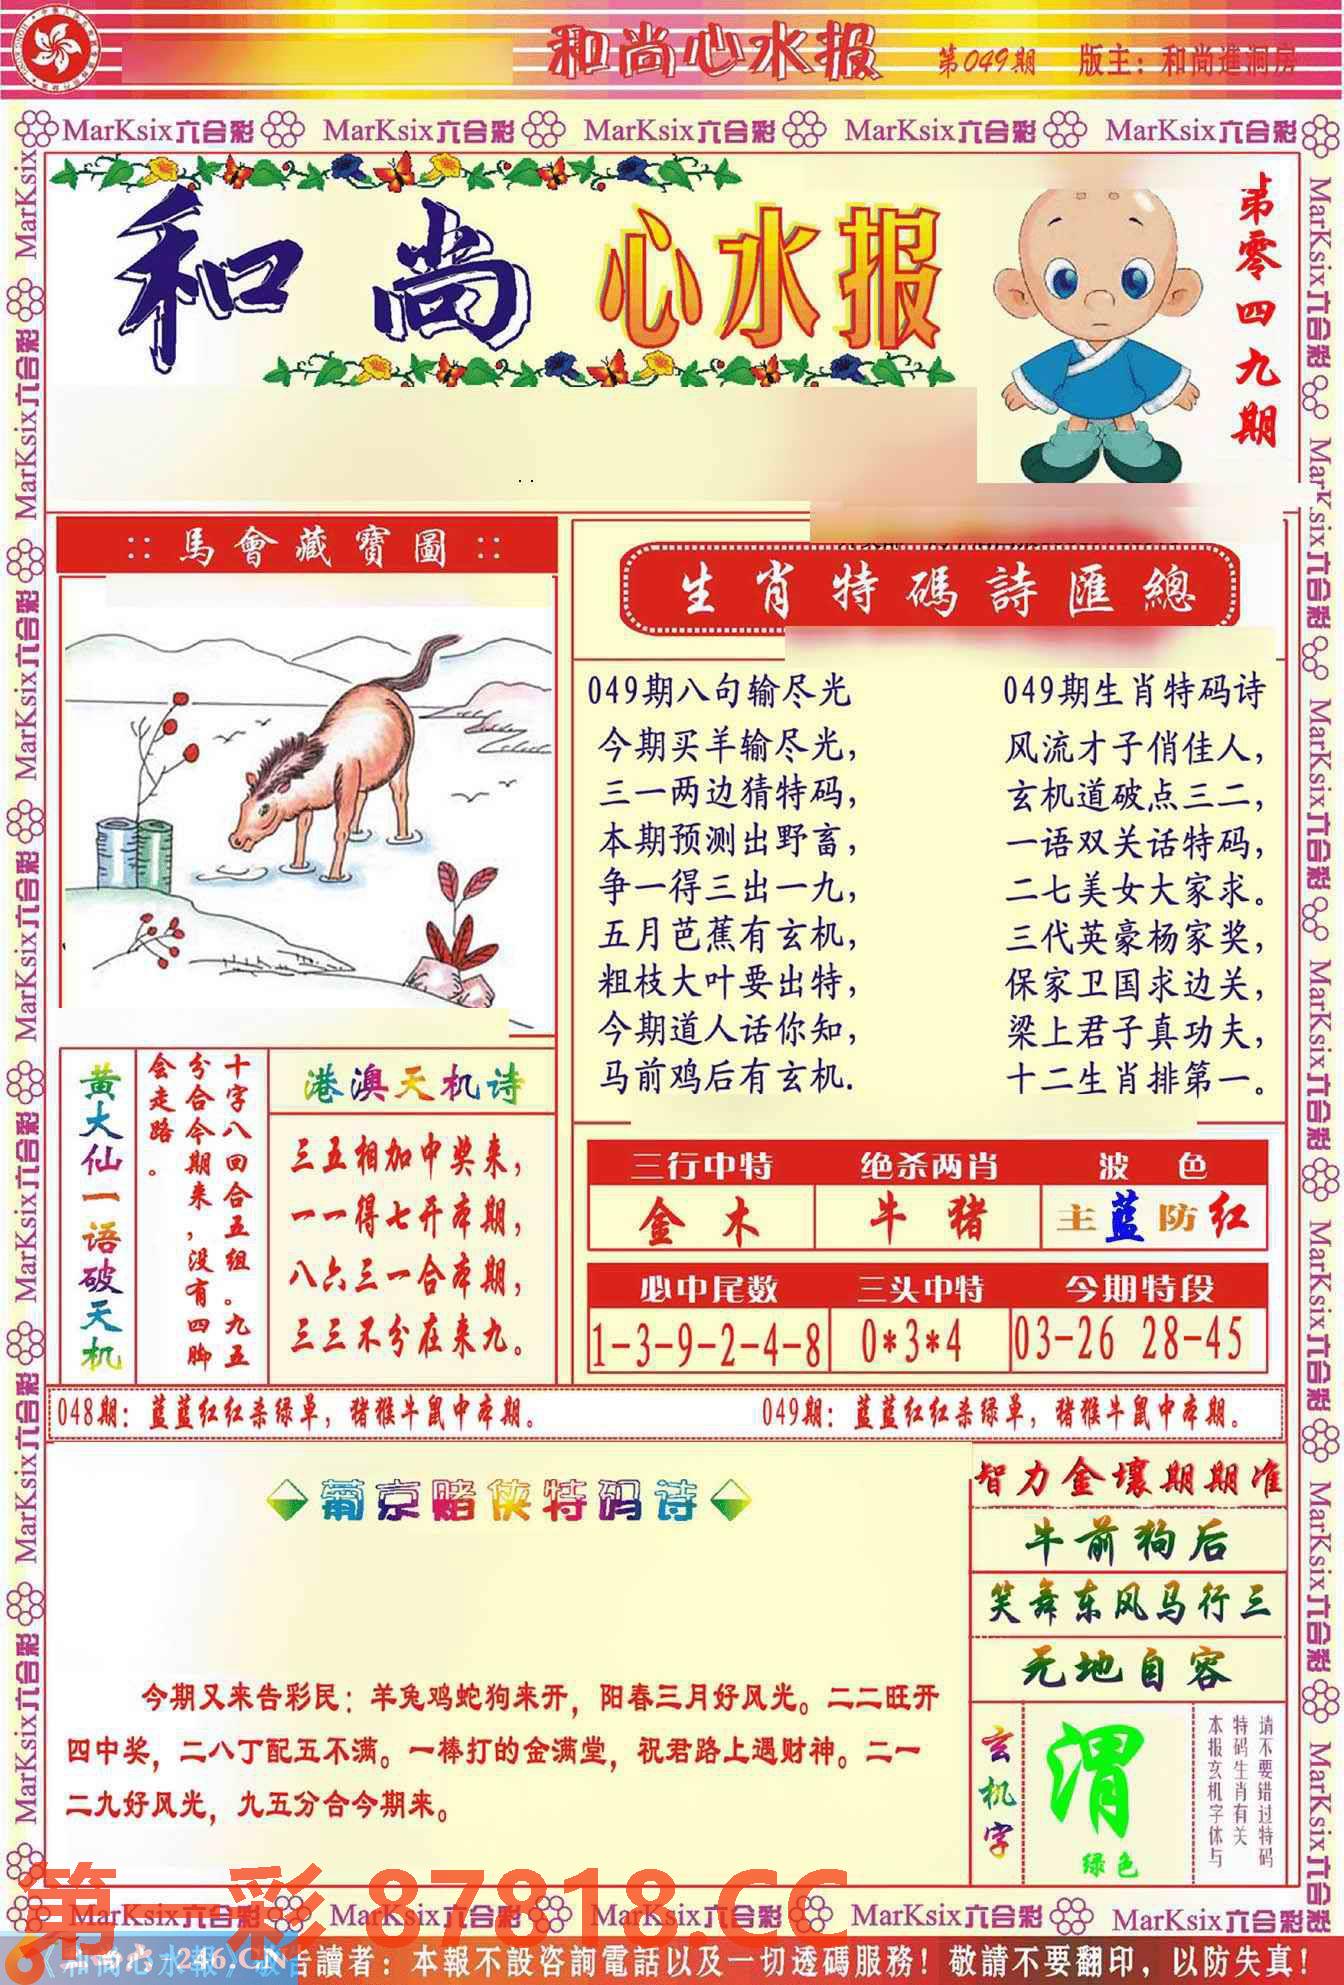 和尚心水报 第049期 版主：和尚進洞房
MarKsix六合彩 MarKsix六合彩 MarKsix六合彩 MarKsix六合彩 MarKsix六合彩
和尚心水报
第零四九期
馬會藏寶圖
生肖特碼詩匯總
049期八句输尽光
今期买羊输尽光，
三一两边猜特码，
本期预测出野畜，
争一得三出一九，
五月芭蕉有玄机，
粗枝大叶要出特，
今期道人话你知，
马前鸡后有玄机.
049期生肖特码诗
风流才子俏佳人，
玄机道破点三二，
一语双关话特码，
二七美女大家求。
三代英豪杨家奖，
保家卫国求边关，
梁上君子真功夫，
十二生肖排第一。
黄大仙一语破天机
十字八回合五组。九五
分合今期来，没有四脚
会走路。
港澳天机诗
三五相加中奖来，
一一得七开本期，
八六三一合本期，
三三不分在来九。
三行中特 绝杀两肖 波色
金木 牛猪 主蓝防红
必中尾数 三头中特 今期特段
1-3-9-2-4-8 0*3*4 03-26 28-45
048期：蓝蓝红红杀绿单，猪猴牛鼠中本期。 049期：蓝蓝红红杀绿单，猪猴牛鼠中本期。
葡京赌侠特码诗
今期又来告彩民：羊兔鸡蛇狗来开，阳春三月好风光。二二旺开
四中奖，二八丁配五不满。一棒打的金满堂，祝君路上遇财神。二一
二九好风光，九五分合今期来。
智力金壤期期准
牛前狗后
笑舞东风马行三
无地自容
玄机字
渭
绿色
请不要错过特码
特码生肖有关
本报玄机字体与
第一彩 87818.CC
MarKsix六合彩 MarKsix六合彩 MarKsix六合彩 MarKsix六合彩 MarKsix六合彩
246.CN
告讀者：本報不設咨詢電話以及一切透碼服務！敬請不要翻印，以防失真！